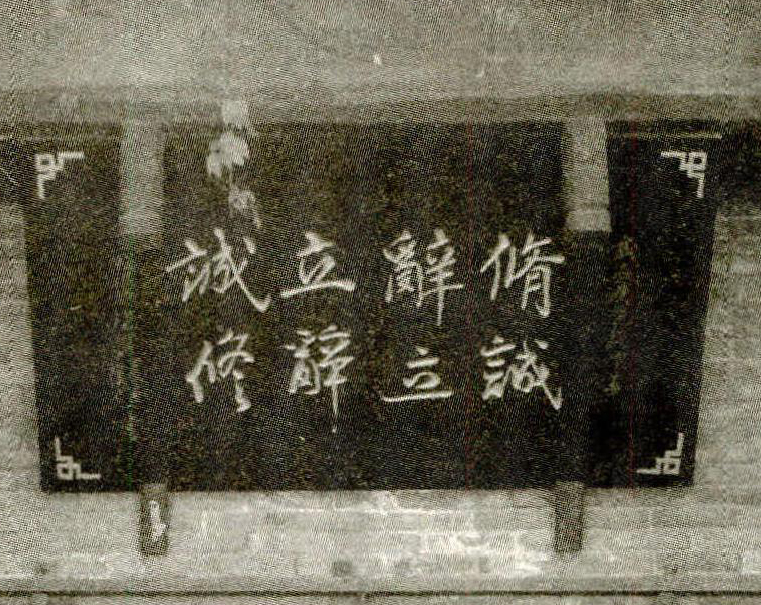 脩辭立誠
誠立辭修